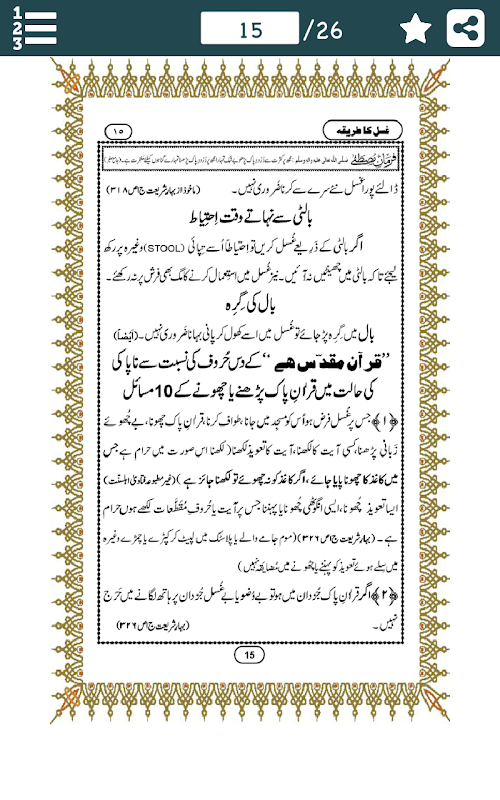 1 2 3
15 /26
غسل کا طریقہ
۱۵
فرمانِ مصطفےٰ صلی اللہ تعالیٰ علیہ والہ وسلم
ڈالئے پورا غسل نئے سرے سے کرنا ضَروری نہیں۔ (ماخوذ از بہارِ شریعت ج۱ص۳۱۸)
بالٹی سے نہاتے وقت اِحتِیاط
اگر بالٹی کے ذَرِیعے غُسل کریں تو اِحتیاطاً اُسے تِپائی (STOOL) وغیرہ پر رکھ
لیجئے تاکہ بالٹی میں چھینٹیں نہ آئیں۔ نیز غُسل میں استِعمال کرنے کا مگ بھی فرش پر نہ رکھئے۔
بال کی گِرِہ
بال میں گِرِہ پڑ جائے تو غُسل میں اسے کھول کر پانی بہانا ضَروری نہیں۔ (اَیضاً)
”قرآن مقدّس ھے“ کے دس حُروف کی نسبت سے ناپاکی
کی حالت میں قرآنِ پاک پڑھنے یا چھونے کے 10 مسائل
﴿۱﴾ جس پر غُسل فرض ہو اُس کو مسجد میں جانا، طواف کرنا، قرآنِ پاک چھونا، بے چُھوئے
زَبانی پڑھنا، کسی آیت کا لکھنا، آیت کا تعویذ لکھنا (لکھنا اس صورت میں حرام ہے جس
میں کاغذ کا چھونا پایا جائے، اگر کاغذ کو نہ چھوئے تو لکھنا جائز ہے) (غیر مطبوعہ فتاویٰ اہلسنّت)
ایسا تعویذ چُھونا، ایسی انگوٹھی چُھونا یا پہننا جس پر آیت یا حُروفِ مُقَطَّعات لکھے ہوں حرام
ہے۔ (بہارِ شریعت ج۱ص۳۲۶) (موم جامے والے یا پلاسٹک میں لپیٹ کر کپڑے یا چمڑے وغیرہ
میں سلے ہوئے تعویذ کو پہننے یا چھونے میں مُضایَقہ نہیں)
﴿۲﴾ اگر قرآنِ پاک جُزدان میں ہو تو بے وُضو یا بے غُسل جُزدان پر ہاتھ لگانے میں حَرَج
نہیں۔ (بہارِ شریعت ج۱ص۳۲۶)
15